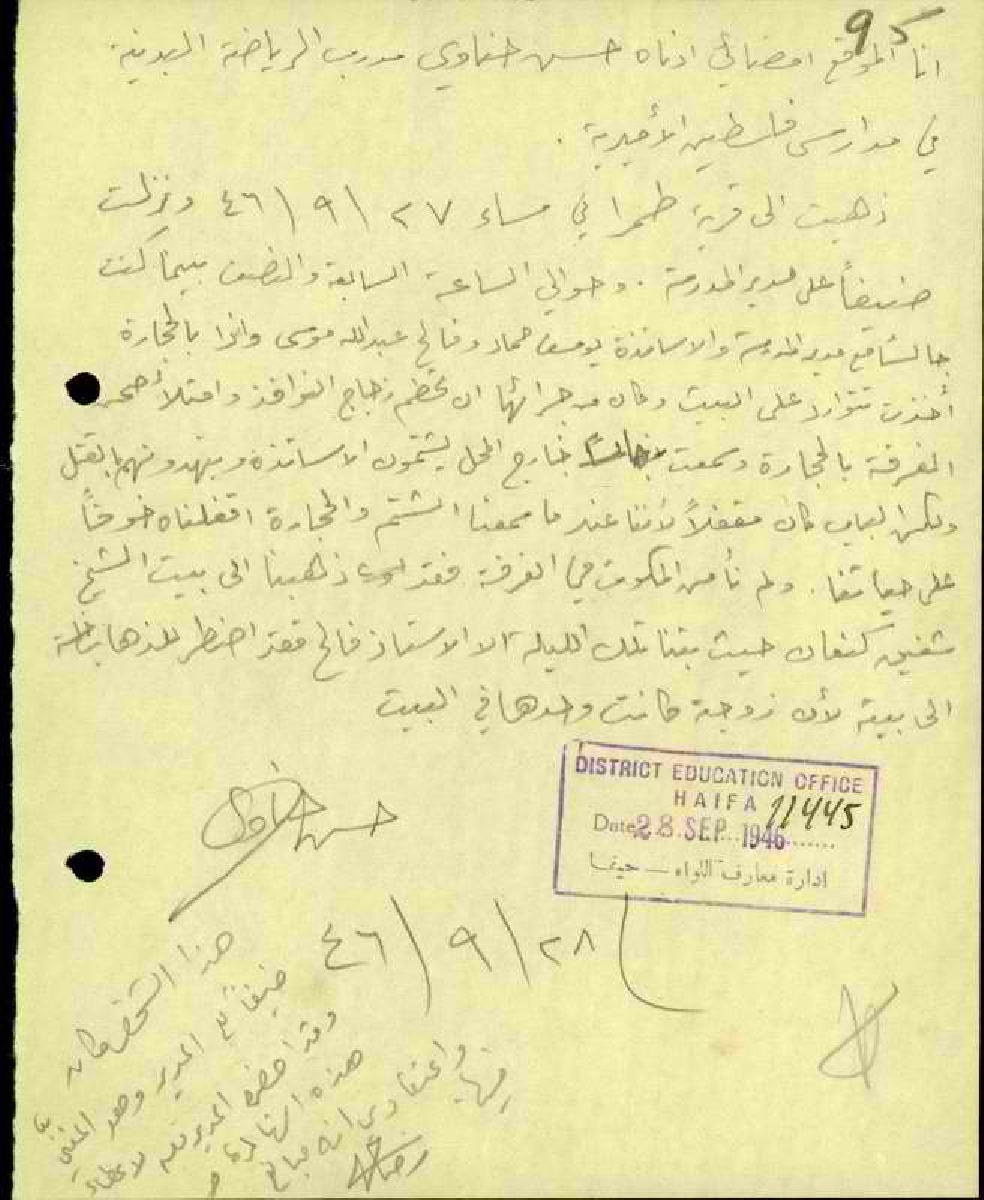 95
انا الموقع امضائي ادناه حسن حناوي مدرب الرياضة البدنية
في مدارس فلسطين الأميرية .
ذهبت الى قرية طمرا في مساء ٢٧ \ ٩ \ ٤٦ ونزلت
ضيفاً على مدير المدرسة . وحوالي الساعة السابعة والنصف بينما كنت
جالساً مع مدير المدرسة والاساتذة يوسف حماد وفالح عبدالله موسى واذا بالحجارة
أخذت تتوارد على البيت وكان من جرائها ان تحطم زجاج النوافذ وامتلأ
الغرفة بالحجارة وسمعت خارج المحل يشتمون الاساتذة ويهددونهم بالقتل
ولكن الباب كان مقفلاً لأننا عندما سمعنا الشتم والحجارة اقفلناه خوفاً
على حياتنا . ولم نأمن المكوث في الغرفة فقد ذهبنا الى بيت الشيخ
كنعان حيث بتنا تلك الليلة الا الاستاذ فالح فقد اضطر للذهاب
الى بيته لأن زوجته كانت وحدها في البيت
DISTRICT EDUCATION OFFICE
HAIFA 11445
Date 28 SEP 1946
ادارة معارف اللواء — حيفا
حسن حناوي
٢٨ \ ٩ \ ٤٦
هذا الشخص كان
ضيفاً على المدير وهو
وقد احضره المدير معه لاعطاء
هذه
واعتقادي انه مبالغ
فيها